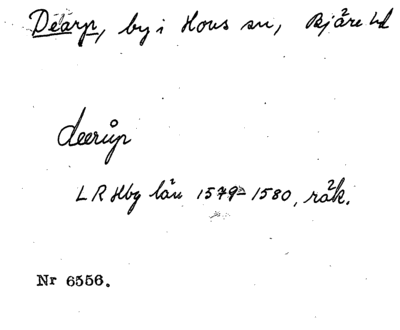 Dearp, by i Hovs sn, Bjäre hd
deerŭp
LR Hbg län 1579-1580, räk.
Nr 6556.